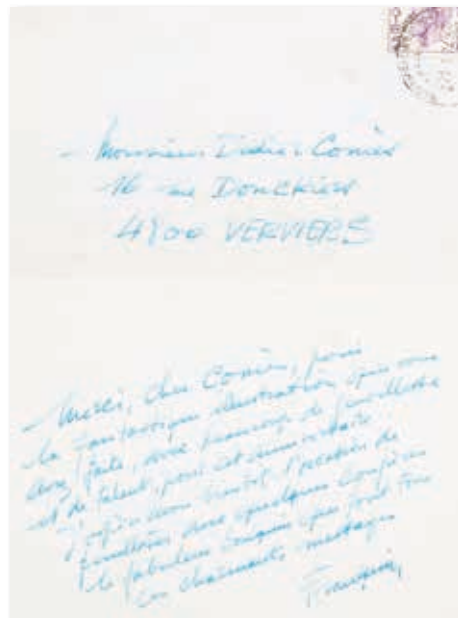 Monsieur Didier Comès
16 rue Donckier
4800 VERVIERS
Merci, cher Comès, pour
la fantastique illustration que vous
avez faite, avec beaucoup de gentillesse
et de talent, pour cet anniversaire
J'espère avoir bientôt l'occasion de
avec quelques confrères
le fabuleux que font tous
ces charmants messages
Franquin